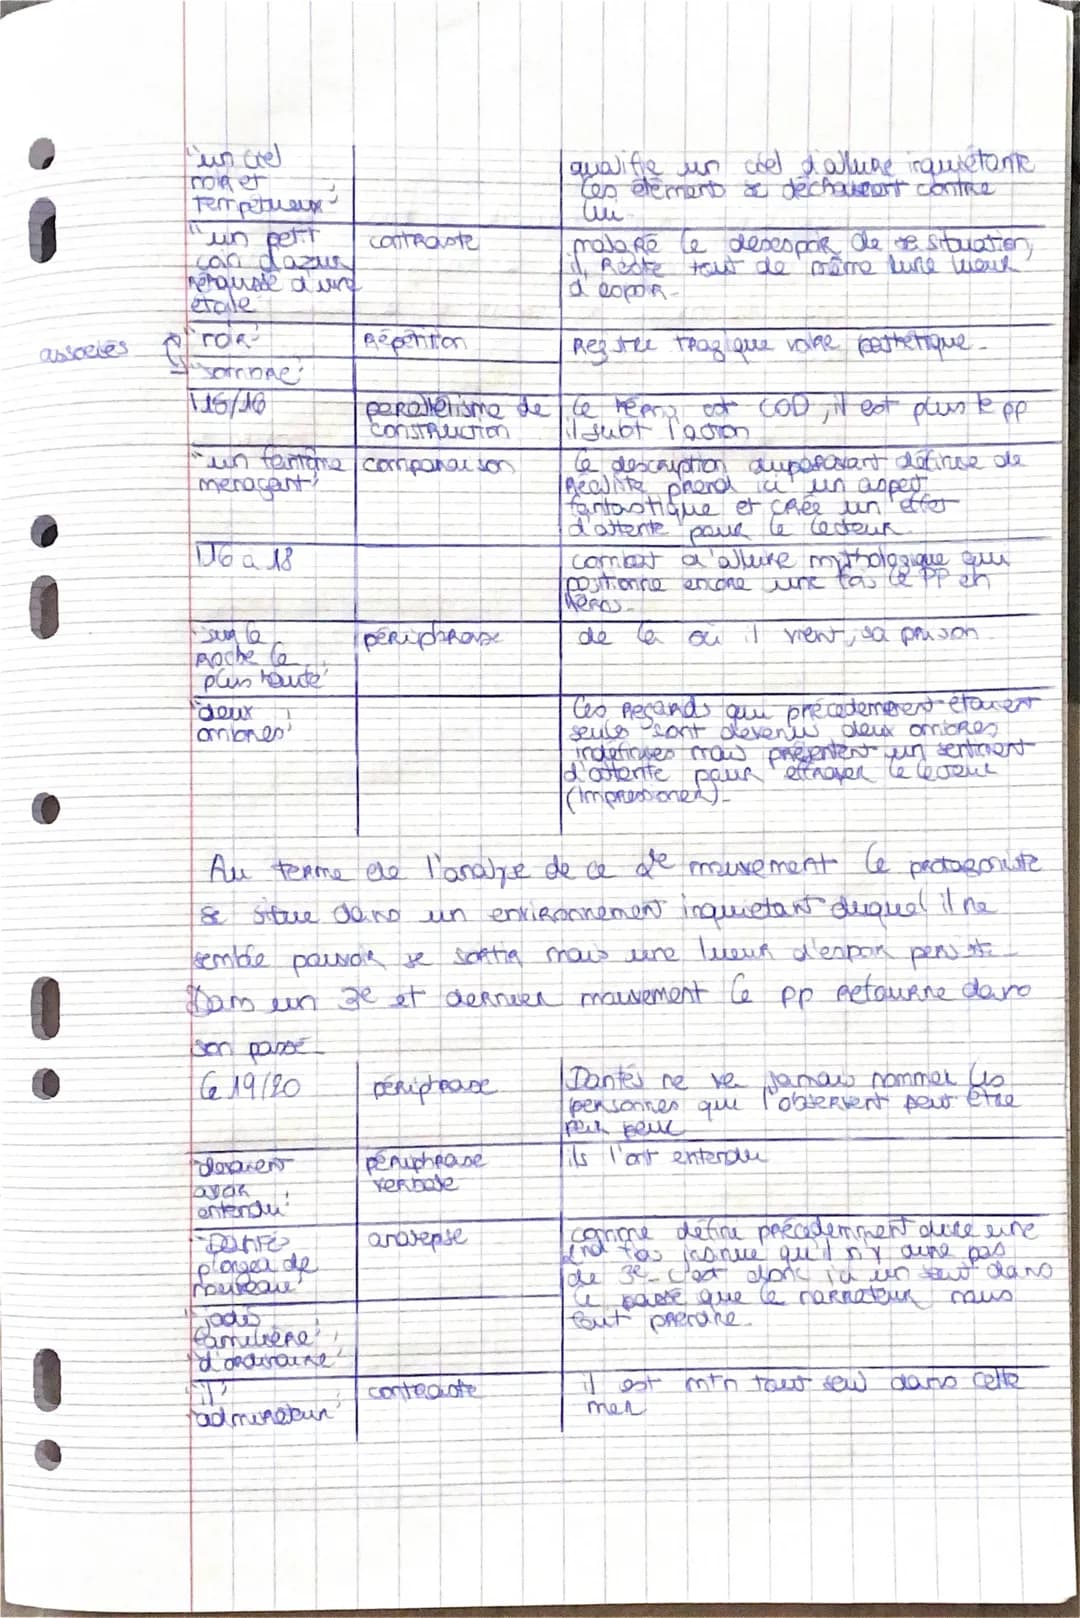 "un ciel
noir et
tempétueux"
qualifie un ciel d'allure inquiétante
les élément se déchainent contre
lui
"un petit
coin d'azur
d'une
étoile
contraste
malgré le désespoir de sa situation,
il reste tout de même une lueur
d'espoir.
associés
"noir"
"sombre"
Répétition
Registre tragique voire pathétique.
l15/16
parallélisme de
construction
le héros est COD, il est plus le pp
il subt l'action
"un fantôme
menaçant"
comparaison
la description auparavant définie de
réalité prend ici un aspect
fantastique et crée un effet
d'attente pour le lecteur.
l16 à 18
combat d'allure mythologique qui
positionne encore une fois le PP en
héros.
"sur la
roche la
plus haute"
périphrase
de là où il vient, sa prison.
"deux
ombres"
les regards qui précedemment étaient
seuls sont devenus deux ombres
indéfinies mais présentent un sentiment
d'attente pour effrayer le lecteur
(impressionner).
Au terme de l'analyse de ce 2e mouvement le protagoniste
se situe dans un environnement inquietant duquel il ne
semble pouvoir se sortir mais une lueur d'espoir persiste.
Dans un 3e et dernier mouvement le pp retourne dans
son passé.
l 19/20
périphrase
Dantès ne va jamais nommer les
personnes que l'observent peut être
par peur
"devaient
avoir
entendu"
périphrase
verbale
ils l'ont entendu
"Dantès
plongea de
nouveau"
anarepse
comme définu précedemment avec une
2nd fois insinue qu'il n'y aura pas
de 3e. c'est donc ici un saut dans
le passé que le narrateur nous
fait prendre.
"jadis
familière"
"d'ordinaire"
"il"
"admirateur"
contraste
il est mtn tout seul dans cette
mer